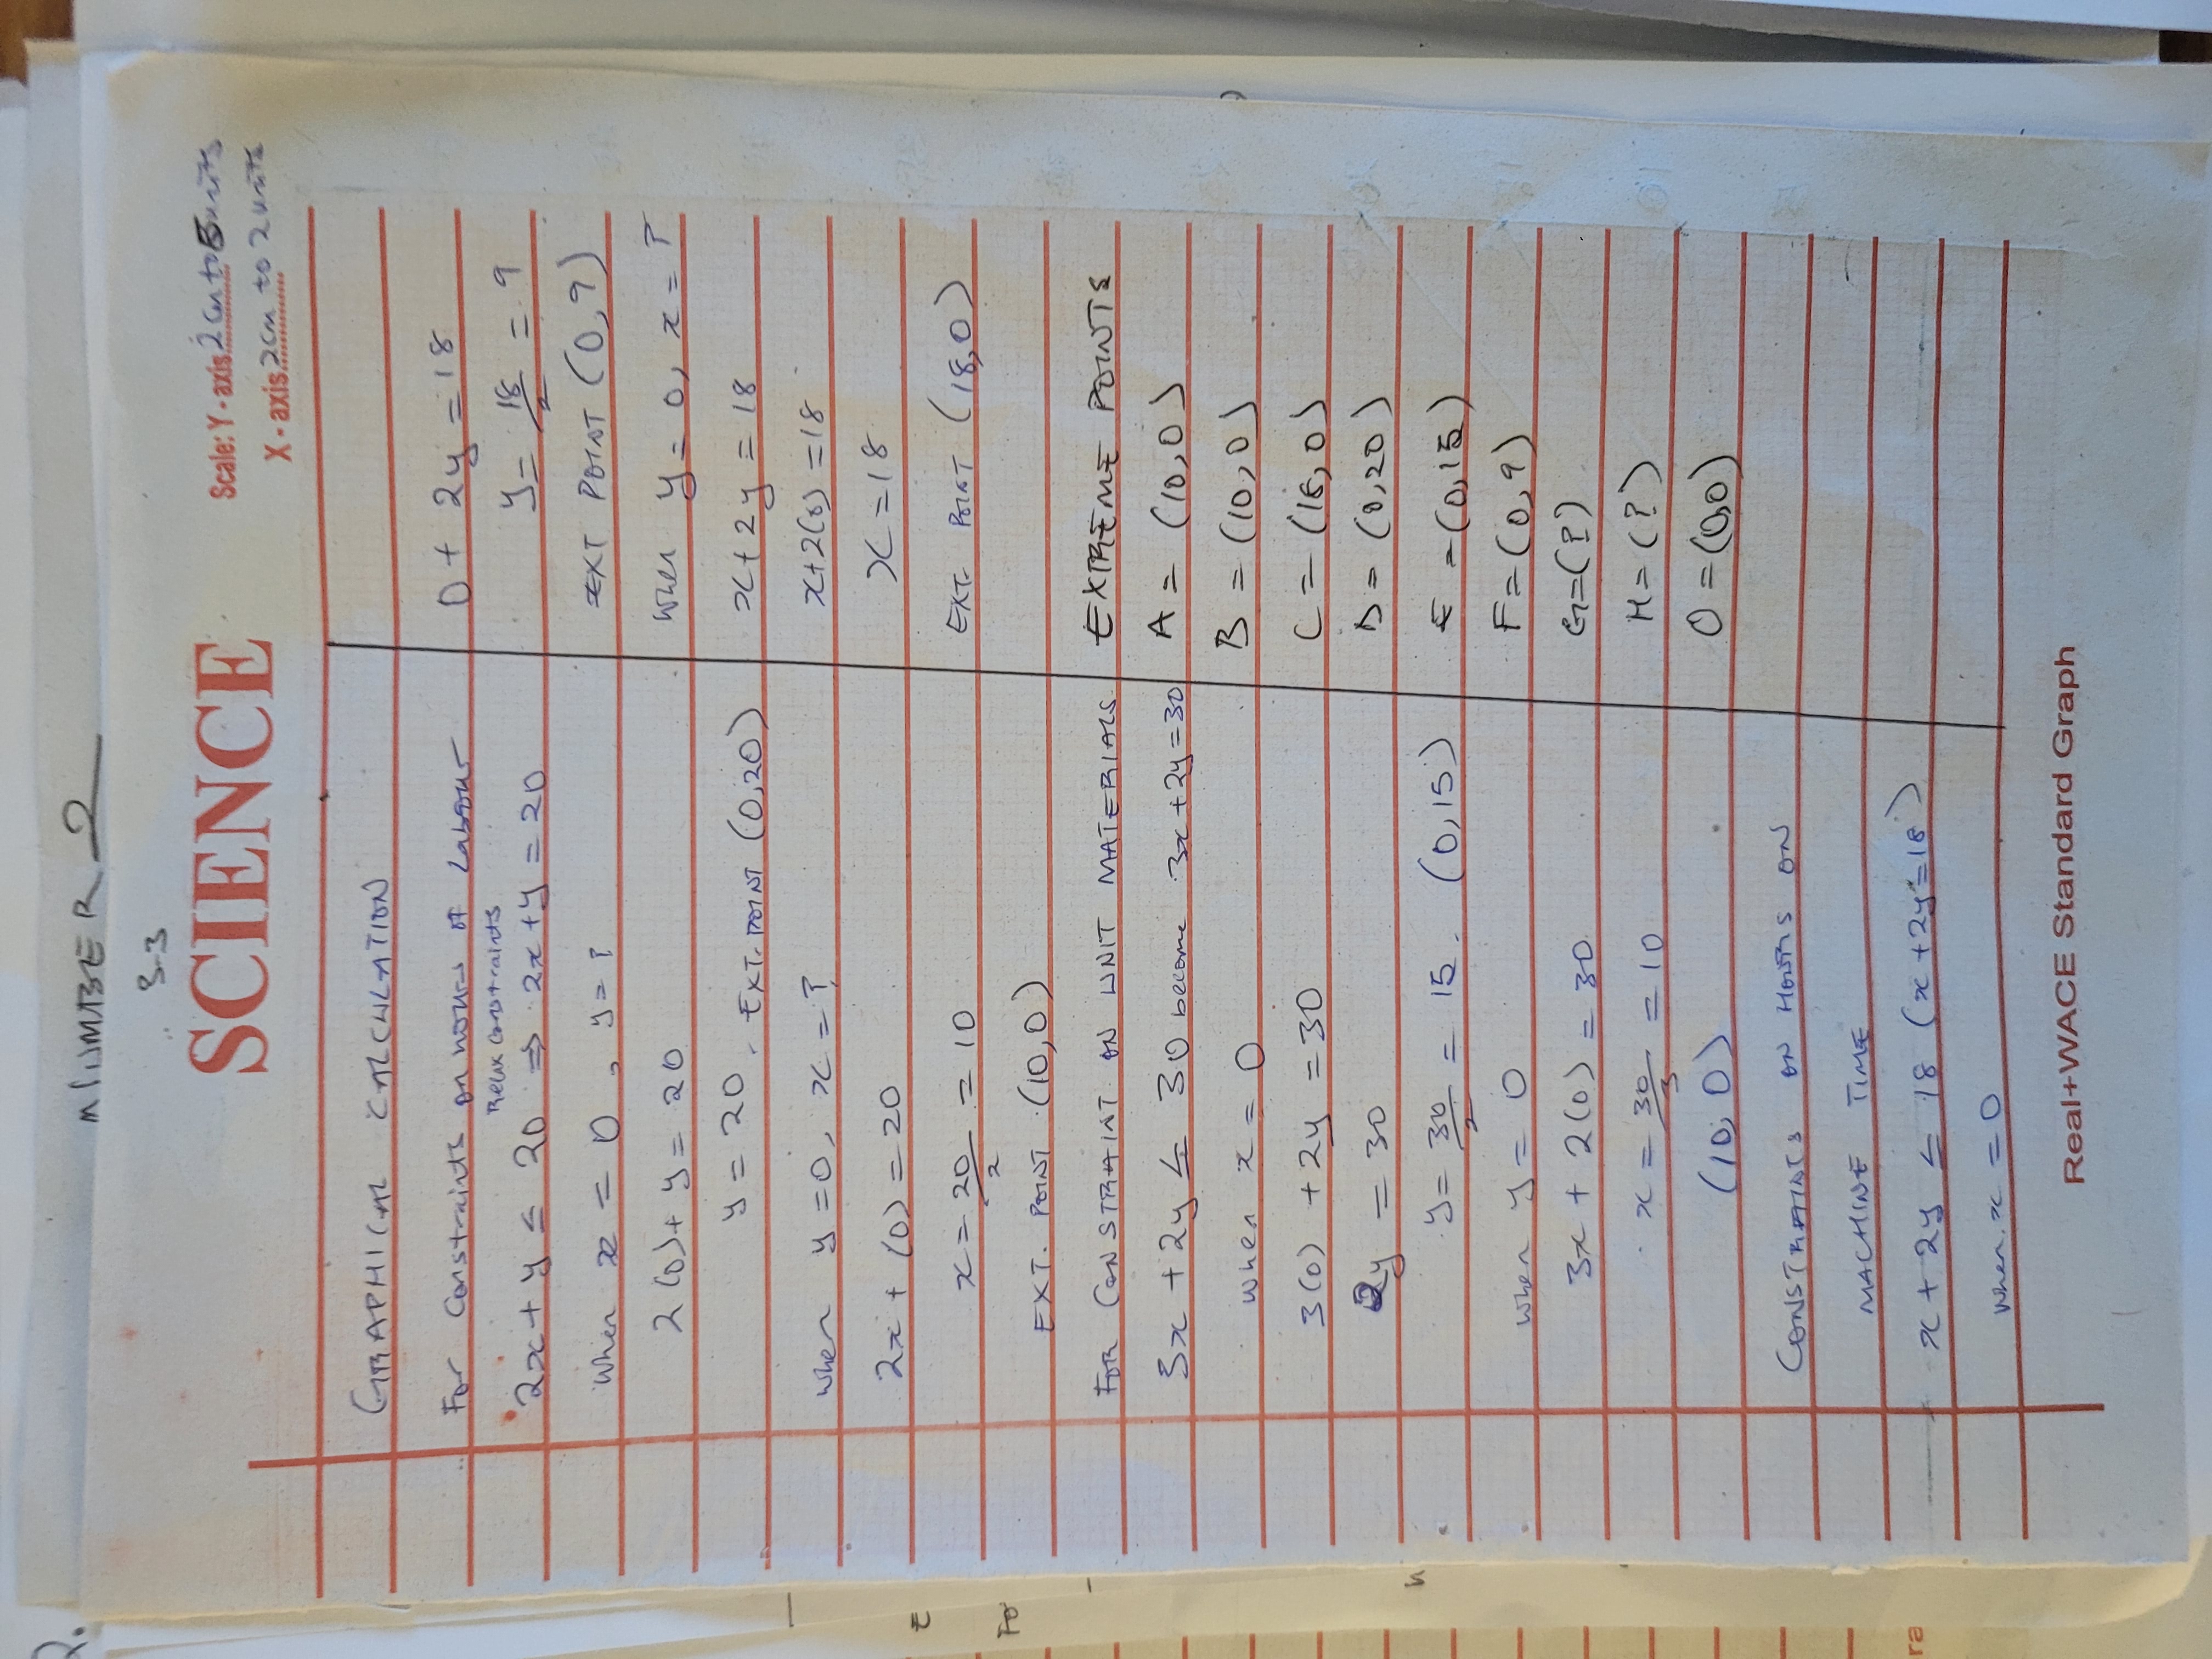 2.
NUMBER 2
3-3
SCIENCE
Scale: Y - axis 2cm to 5 units
X - axis 2cm to 2 units
GRAPHICAL CALCULATION
For Constraints on hours of Labour
Relax constraints
2x + y ≤ 20 ⇒ 2x + y = 20
When x = 0, y = ?
2(0) + y = 20
y = 20. EXT. POINT (0,20)
when y = 0, x = ?
2x + (0) = 20
x = 20/2 = 10
EXT. POINT (10,0)
FOR CONSTRAINT ON UNIT MATERIALS
3x + 2y ≤ 30 become 3x + 2y = 30
when x = 0
3(0) + 2y = 30
2y = 30
y = 30/2 = 15. (0,15)
when y = 0
3x + 2(0) = 30
x = 30/3 = 10
(10, 0)
CONSTRAINTS ON HOURS ON
MACHINE TIME
x + 2y ≤ 18 (x + 2y = 18)
when x = 0
0 + 2y = 18
y = 18/2 = 9
EXT POINT (0,9)
When y = 0, x = ?
x + 2y = 18
x + 2(0) = 18
x = 18
EXT. POINT (18,0)
EXTREME POINTS
A = (10,0)
B = (10,0)
C = (18,0)
D = (0,20)
E = (0,15)
F = (0,9)
G = (?)
H = (?)
O = (0,0)
Real+WACE Standard Graph
E
Fo
ra